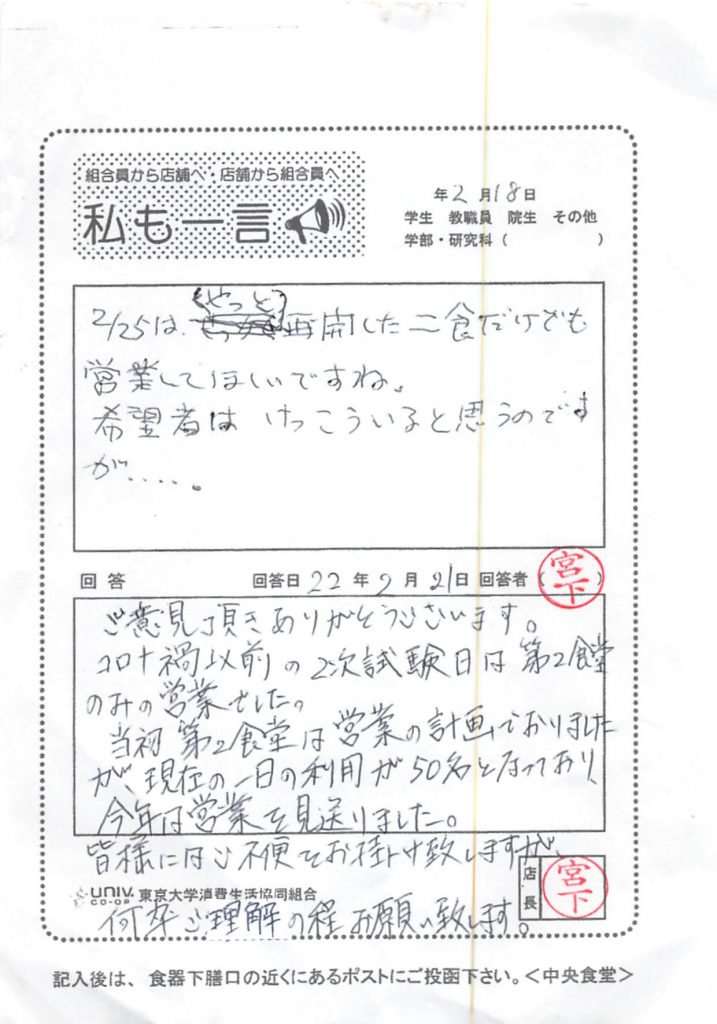 組合員から店舗へ・店舗から組合員へ
私も一言
年2月18日
学生 教職員 院生 その他
学部・研究科( )
(やっと)
2/25は、再開した二食だけでも
営業してほしいですね。
希望者は けっこういると思うのです
が.....。
回答 回答日 22年2月21日 回答者(宮下)
ご意見頂きありがとうございます。
コロナ禍以前の2次試験日は第2食堂
のみの営業でした。
当初 第2食堂は営業の計画でおりました
が、現在の一日の利用が50名となっており、
今年は営業を見送りました。
皆様にはご不便をお掛け致しますが、
店長 宮下
UNIV. CO-OP 東京大学消費生活協同組合
何卒ご理解の程お願い致します。
記入後は、食器下膳口の近くにあるポストにご投函下さい。<中央食堂>